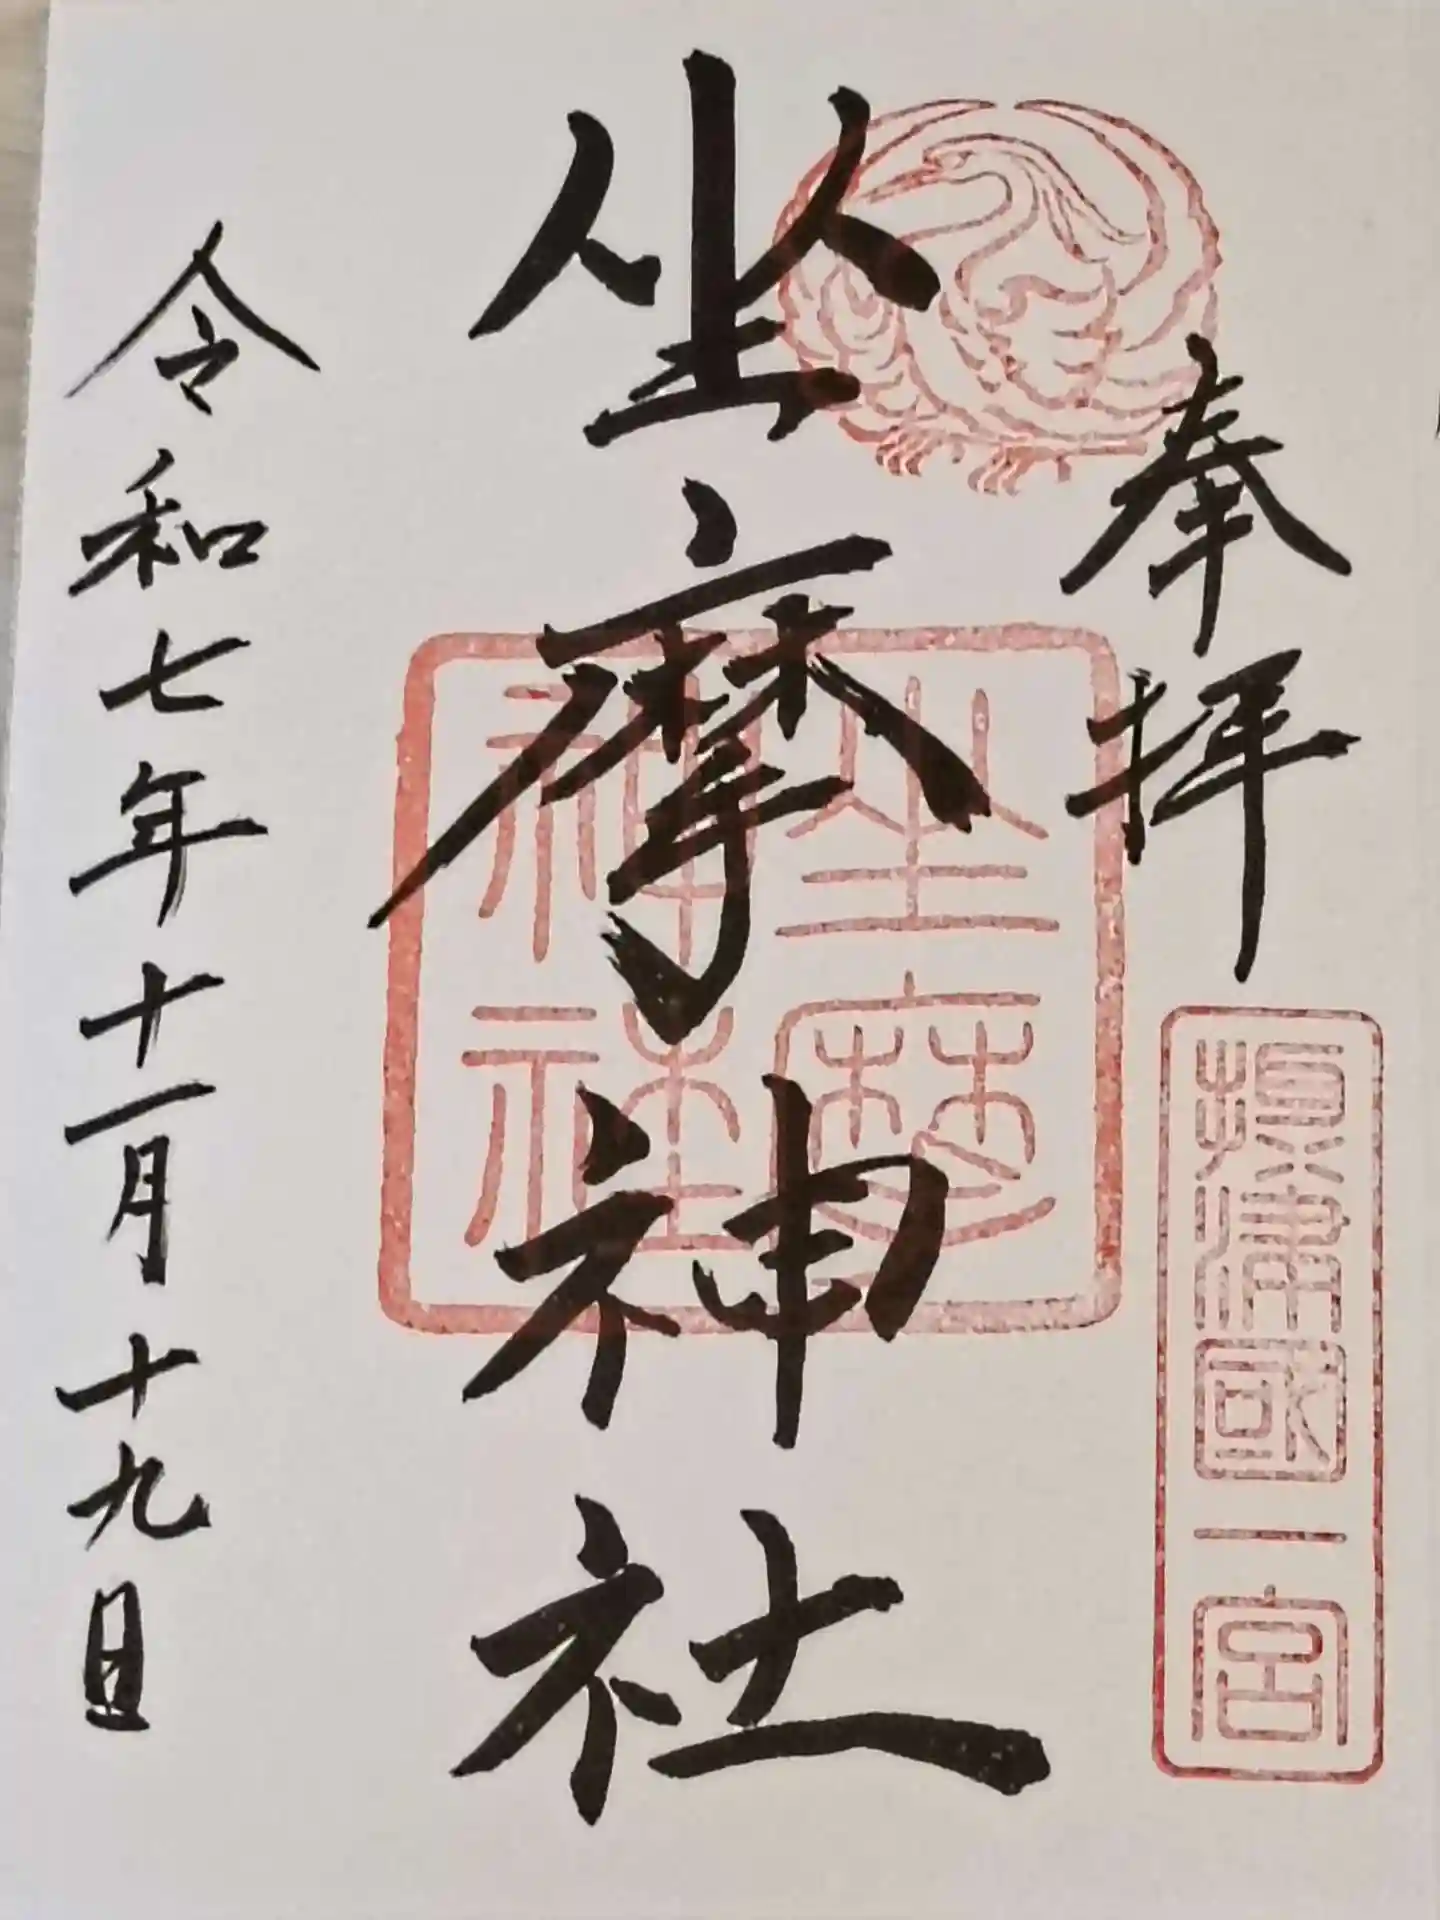 奉拝
摂津國一宮
坐摩神社
坐摩
神社
令和七年十一月十九日